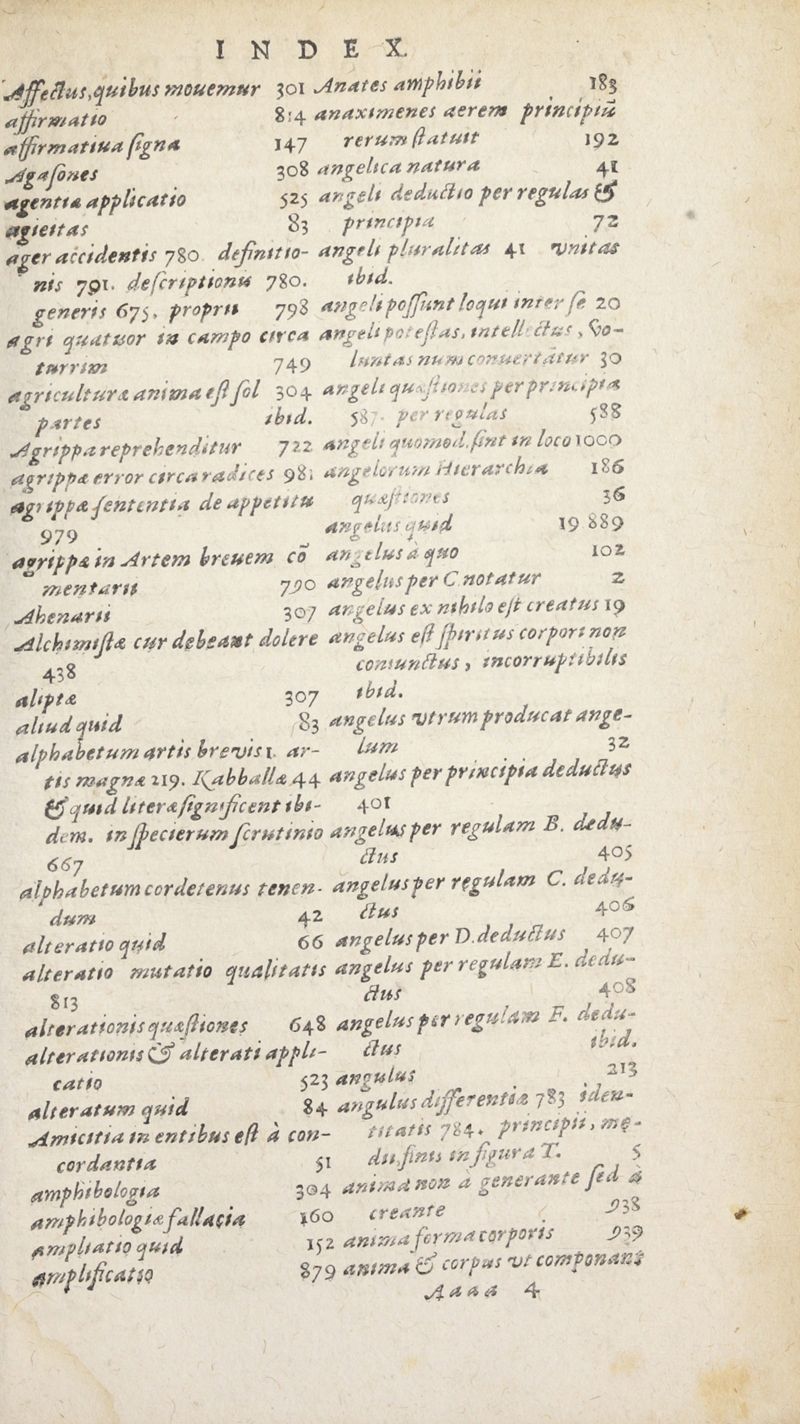 INDEX.
Affectus, quibus mouemur 301
affirmatio 814
affirmatiua signa 147
Agasones 308
agentia applicatio 525
agiettas 83
ager accidentis 780. definitio-
nis 791. descriptionis 780.
generis 675. proprii 798
agri quatuor in campo circa
turrim 749
agricultura anima est sol 304
partes ibid.
Agrippa reprehenditur 722
agrippæ error circa radices 981
agrippæ sententia de appetitu
979
agrippa in Artem breuem cō
mentarii 790
Ahenarii 307
Alchimistæ cur debeant dolere
438
aliptæ 307
aliud quid 83
alphabetum artis brevis 1. ar-
tis magnæ 219. Kabballæ 44
& quid literæ significent ibi-
dem. in specierum scrutinio
667
alphabetum cordetenus tenen-
dum 42
alteratio quid 66
alteratio mutatio qualitatis
813
alterationis quæstiones 648
alterationis & alterati appli-
catio 523
alteratum quid 84
Amicitia in entibus est à con-
cordantia 51
amphibologia 304
amphibologiæ fallacia 160
ampliatio quid 152
amplificatio 879
Anates amphibii 183
anaximenes aerem principiū
rerum statuit 192
angelica natura 41
angeli deductio per regulas &
principia 72
angeli pluralitas 41 vnitas
ibid.
angeli possunt loqui inter se 20
angeli potestas, intellectus, vo-
luntas num conuertātur 30
angeli quæstiones per principia
587. per regulas 588
angeli quomod. sint in loco 1000
angelorum Hierarchia 186
quæstiones 36
angelus quid 19 889
angelus à quo 102
angelus per C notatur 2
angelus ex nihilo est creatus 19
angelus est spiritus corpori non
coniunctus, incorruptibilis
ibid.
angelus vtrum producat ange-
lum 32
angelus per principia deductus
401
angelus per regulam B. dedu-
ctus 405
angelus per regulam C. dedu-
ctus 406
angelus per D. deductus 407
angelus per regulam E. dedu-
ctus 408
angelus per regulam F. dedu-
ctus ibid.
angulus 213
angulus differentiæ 783 iden-
titatis 784. principii, me-
dii, finis in figura T. 5
anima non à generante sed à
creante 938
anima forma corporis 939
anima & corpus vt componant
Aaaa 4